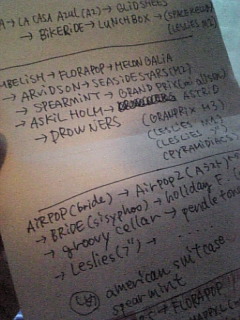 A → LA CASA AZUL (A2) → GLIDSHELLS
→ BIKERIDE → LUNCHBOX → (SPACEKELLY
(LESLIES M2)
MBELISH → FLORAPOP → MELONGALIA
→ ARVIDSON → SEASIDESTARS (M2)
→ SPEARMINT → GRANDPRIX (mi allison)
→ ASKIL HOLM → ASTRID
→ DROWNERS (GRANDPRIX M3)
(LESLIES M2)
(LESLIES 7")
(PYRAMIDIACS
AIRPOP (bride) → AIRPOP2 (A32t)
→ BRIDE (sisyphoo) → holiday F.
→ groovy cellar → pendletone
→ Leslies (7") →
american suitcase
spearmint
→ FLORAPOP